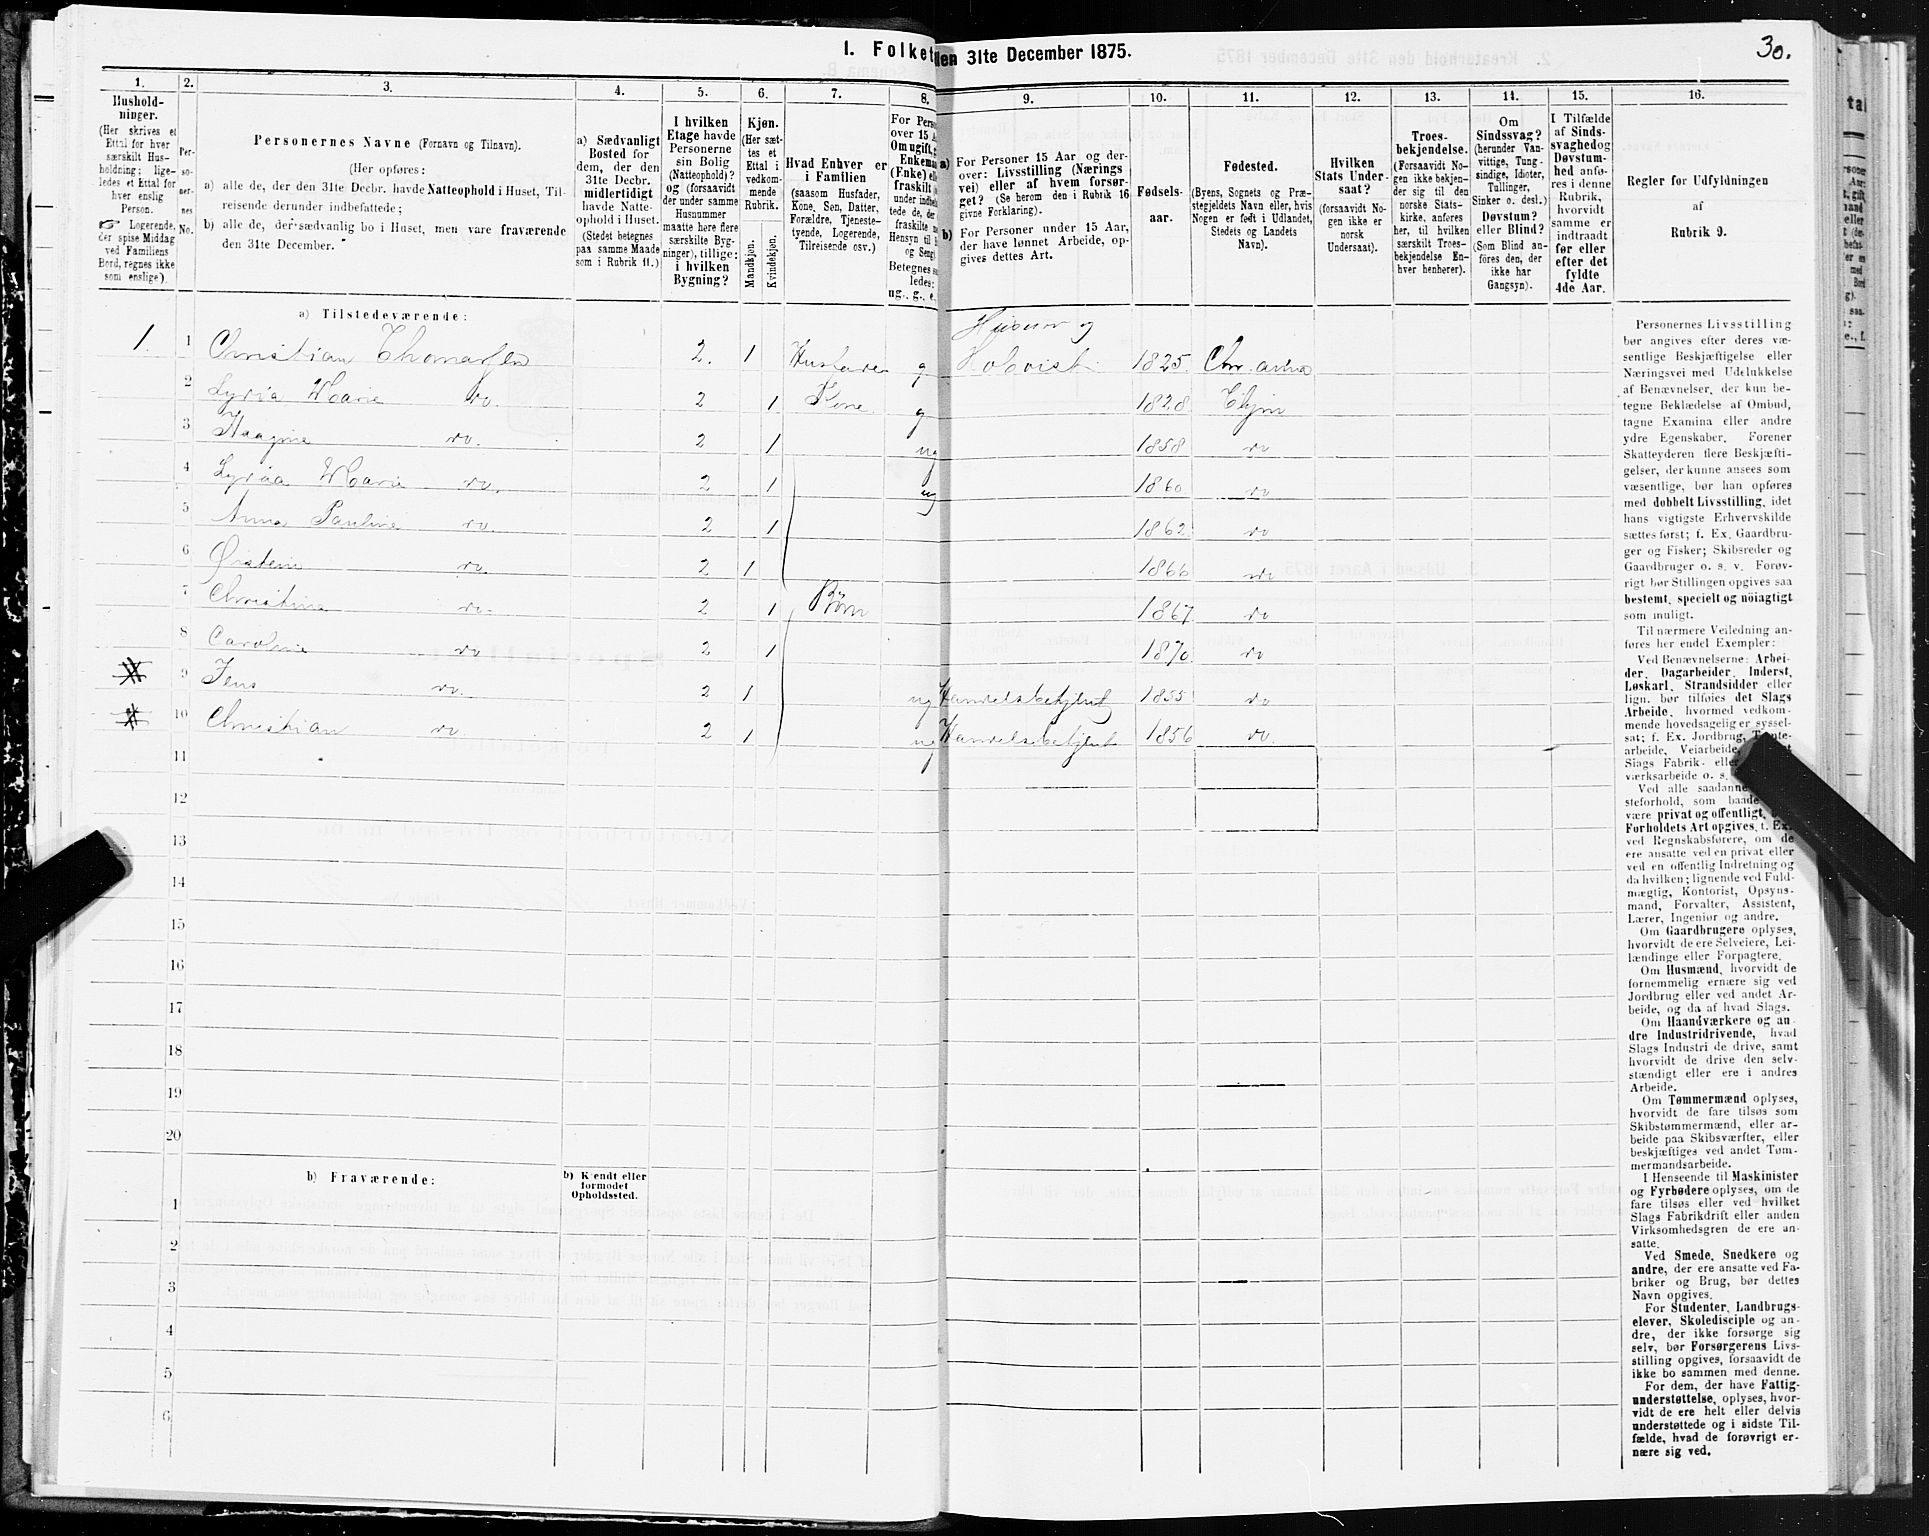 30.
1. Folket
den 31te December 1875.
1. 2. 3. 4. 5. 6. 7. 8. 9. 10. 11. 12. 13. 14. 15. 16.
Hushold-
ninger.
(Her skrives et
Ettal for hver
særskilt Hus-
holdning; lige-
ledes et Ettal for
hver enslig
Person.
☞ Logerende,
der spise Middag
ved Familiens
Bord, regnes ikke
som enslige).
Per-
so-
ner-
nes
No.
Personernes Navne (Fornavn og Tilnavn).
(Her opføres:
a) alle de, der den 31te Decbr. havde Natteophold i Huset, Til-
reisende derunder indbefattede;
b) alle de, der sædvanlig bo i Huset, men vare fraværende
den 31te December.
a) Sædvanligt
Bosted for
dem, der den
31te Decbr.
midlertidigt
havde Natte-
ophold i Huset.
(Stedet betegnes
paa samme Maade
som i Rubrik 11.)
I hvilken
Etage havde
Personerne
sin Bolig
(Natteophold)?
og (forsaavidt
der under samme
Husnummer
maatte høre flere
særskilte Byg-
ninger), tillige:
i hvilken
Bygning?
Kjøn.
(Her sæt-
tes et
Ettal i
vedkom-
mende
Rubrik.
Mandkjøn.
Kvindekjøn.
Hvad Enhver er
i Familien
(saasom Husfader,
Kone, Søn, Datter,
Forældre, Tjeneste-
tyende, Logerende,
Tilreisende osv.)
For Perso
over 15 A
Om ugift, g
Enkema
(Enke) ell
fraskilt
under indb
tede de, der
fraskilte m
Hensyn til
og Seng)
Betegnes s
ledes:
ug., g., e.
a)
For Personer 15 Aar og der-
over: Livsstilling (Nærings
vei) eller af hvem forsør-
get? (Se herom den i Rubrik 16
givne Forklaring).
b)
For Personer under 15 Aar,
der have lønnet Arbeide, op-
gives dettes Art.
Fødsels-
aar.
Fødested.
(Byens, Sognets og Præ-
stegjeldets Navn eller, hvis
Nogen er født i Udlandet,
Stedets og Landets
Navn).
Hvilken
Stats Under-
saat?
(forsaavidt No-
gen ikke er
norsk
Undersaat).
Troes-
bekjendelse.
(Forsaavidt No-
gen ikke bekjen-
der sig til den
norske Stats-
kirke, anføres
her, til hvilken
særskilt Troes-
bekjendelse En-
hver henhører).
Om
Sindssvag?
(herunder Van-
vittige, Tung-
sindige, Idioter,
Tullinger,
Sinker o. desl.)
Døvstum?
eller Blind?
(Som Blind an-
føres den, der
ikke har
Gangsyn).
I Tilfælde
af Sinds-
svaghed og
Døvstum-
hed anfø-
res i denne
Rubrik,
hvorvidt
samme er
indtraadt
før eller
efter det
fyldte
4de Aar.
Regler for Udfyldningen
af
Rubrik 9.
a) Tilstedeværende:
Huseier og
1. 1 Christian Thomassen 2. 1 Husfader g 1825 Chr.ania
2 Marie do. 2 1 Kone g 1828 Thjm
3 do. 2 1 ug 1858 do
4 Marie do. 2 1 ug 1860 do
5 Anna Pauline do. 2 1 1862 do
6 do. 2 1 1866 do
7 Christina do. 2 1 Børn 1867 do
8 Caroline do 2 1 1870 do
9 Jens do. 2 1 ug Handelsbetjent 1855 do
10 Christian do. 2 1 ug Handelsbetjent 1856 do.
11
12
13
14
15
16
17
18
19
20
b) Fraværende:
b) Kjendt eller
formodet
Opholdssted.
1
2
3
4
5
6
Personernes Livsstilling
bør angives efter deres væ-
sentlige Beskjæftigelse eller
Næringsvei med Udelukkelse
af Benævnelser, der kun be-
tegne Beklædelse af Ombud,
tagne Examina eller andre
ydre Egenskaber. Forener
Skatteyderen flere Beskjæfti-
gelser, der kunne ansees som
væsentlige, bør han opføres
med dobbelt Livsstilling, idet
hans vigtigste Erhvervskilde
sættes først; f. Ex. Gaardbru-
ger og Fisker; Skibsreder og
Gaardbruger o. s. v. Forøv-
rigt bør Stillingen opgives saa
bestemt, specielt og nöiagtigt
som muligt.
Til nærmere Veiledning an-
føres her endel Exempler:
Ved Benævnelserne: Arbei-
der, Dagarbeider, Inderst,
Løskarl, Strandsidder eller
lign. bør tilføies det Slags
Arbeide, hvormed vedkom-
mende hovedsagelig er syssel-
sat; f. Ex. Jordbrug, Tomte-
arbeide, Veiarbeide,
Slags Fabrik- eller
værksarbeide o. s.
Ved alle saadanne
steforhold, som baade
være privat og offentligt,
Forholdets Art opgives, f. Ex.
ved Regnskabsførere, om de
ere ansatte ved en privat eller
ved en offentlig Indretning og
da hvilken; lignende ved Fuld-
mægtig, Kontorist, Opsyns-
mand, Forvalter, Assistent,
Lærer, Ingeniør og andre.
Om Gaardbrugere oplyses,
hvorvidt de ere Selveiere, Lei-
lændinge eller Forpagtere.
Om Husmænd, hvorvidt de
fornemmelig ernære sig ved
Jordbrug eller ved andet Ar-
beide, og da af hvad Slags.
Om Haandværkere og an-
dre Industridrivende, hvad
Slags Industri de drive, samt
hvorvidt de drive den selv-
stændigt eller ere i andres
Arbeide.
Om Tømmermænd oplyses,
hvorvidt de fare tilsøs som
Skibstømmermænd, eller ar-
beide paa Skibsværfter, eller
beskjæftiges ved andet Tøm-
mermandsarbeide.
I Henseende til Maskinister
og Fyrbødere oplyses, om de
fare tilsøs eller ved hvilket
Slags Fabrikdrift eller anden
Virksomhedsgren de ere an-
satte.
Ved Smede, Snedkere og
andre, der ere ansatte ved Fa-
briker og Brug, bør dettes
Navn opgives.
For Studenter, Landbrugs-
elever, Skoledisciple og an-
dre, der ikke forsørge sig
selv, bør Forsørgerens Livs-
stilling opgives, forsaavidt de
ikke bo sammen med denne.
For dem, der have Fattig-
understøttelse, oplyses, hvor-
vidt de ere helt eller delvis
understøttede og i sidste Til-
fælde, hvad de forøvrigt er-
nære sig ved.